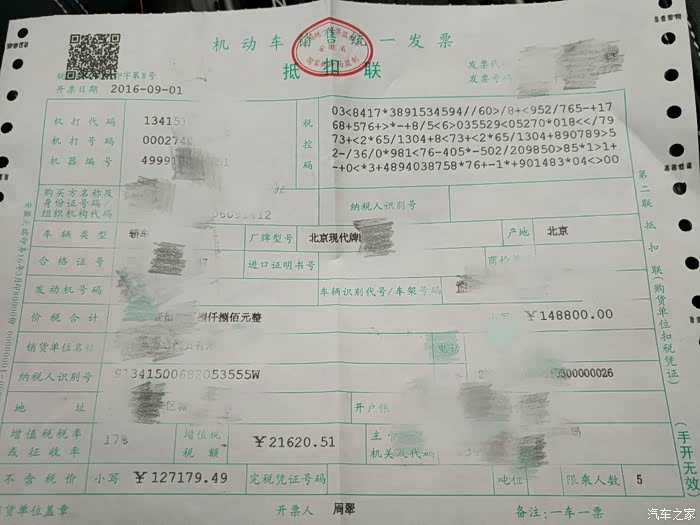 机动车销售统一发票
抵扣联
开票日期 2016-09-01
发票代码
发票号码
机打代码 1341
机打号码 00027
机器编号 4999
税控码
03<8417*3891534594//60>/8+<952/765-+17
68+576+>*-+8/5<6>035529<05270*018<</79
73+<2*65/1304+8<73+<2*65/1304+890789>5
2-/36/0*981<76-405*-502/209850>85*1>1+
-+0<*3+4894038758*76+-1*+901483*04<>00
购买方名称及身份证号码/组织机构代码
纳税人识别号
车辆类型 轿车 厂牌型号 北京现代牌 产地 北京
合格证号 进口证明书号
发动机号码 车辆识别代号/车架号码
价税合计 捌仟捌佰元整 小写 ￥148800.00
销货单位名称 电话
纳税人识别号 91341500682053555W 300000026
地址 开户银
增值税税率或征收率 17% 增值税税额 ￥21620.51 主管 机关及代码
不含税价 小写 ￥127179.49 完税凭证号码 吨位 限乘人数 5
销货单位盖章 开票人 周翠 备注:一车一票
第二联 抵扣联(购货单位扣税凭证)
(手开无效)
汽车之家